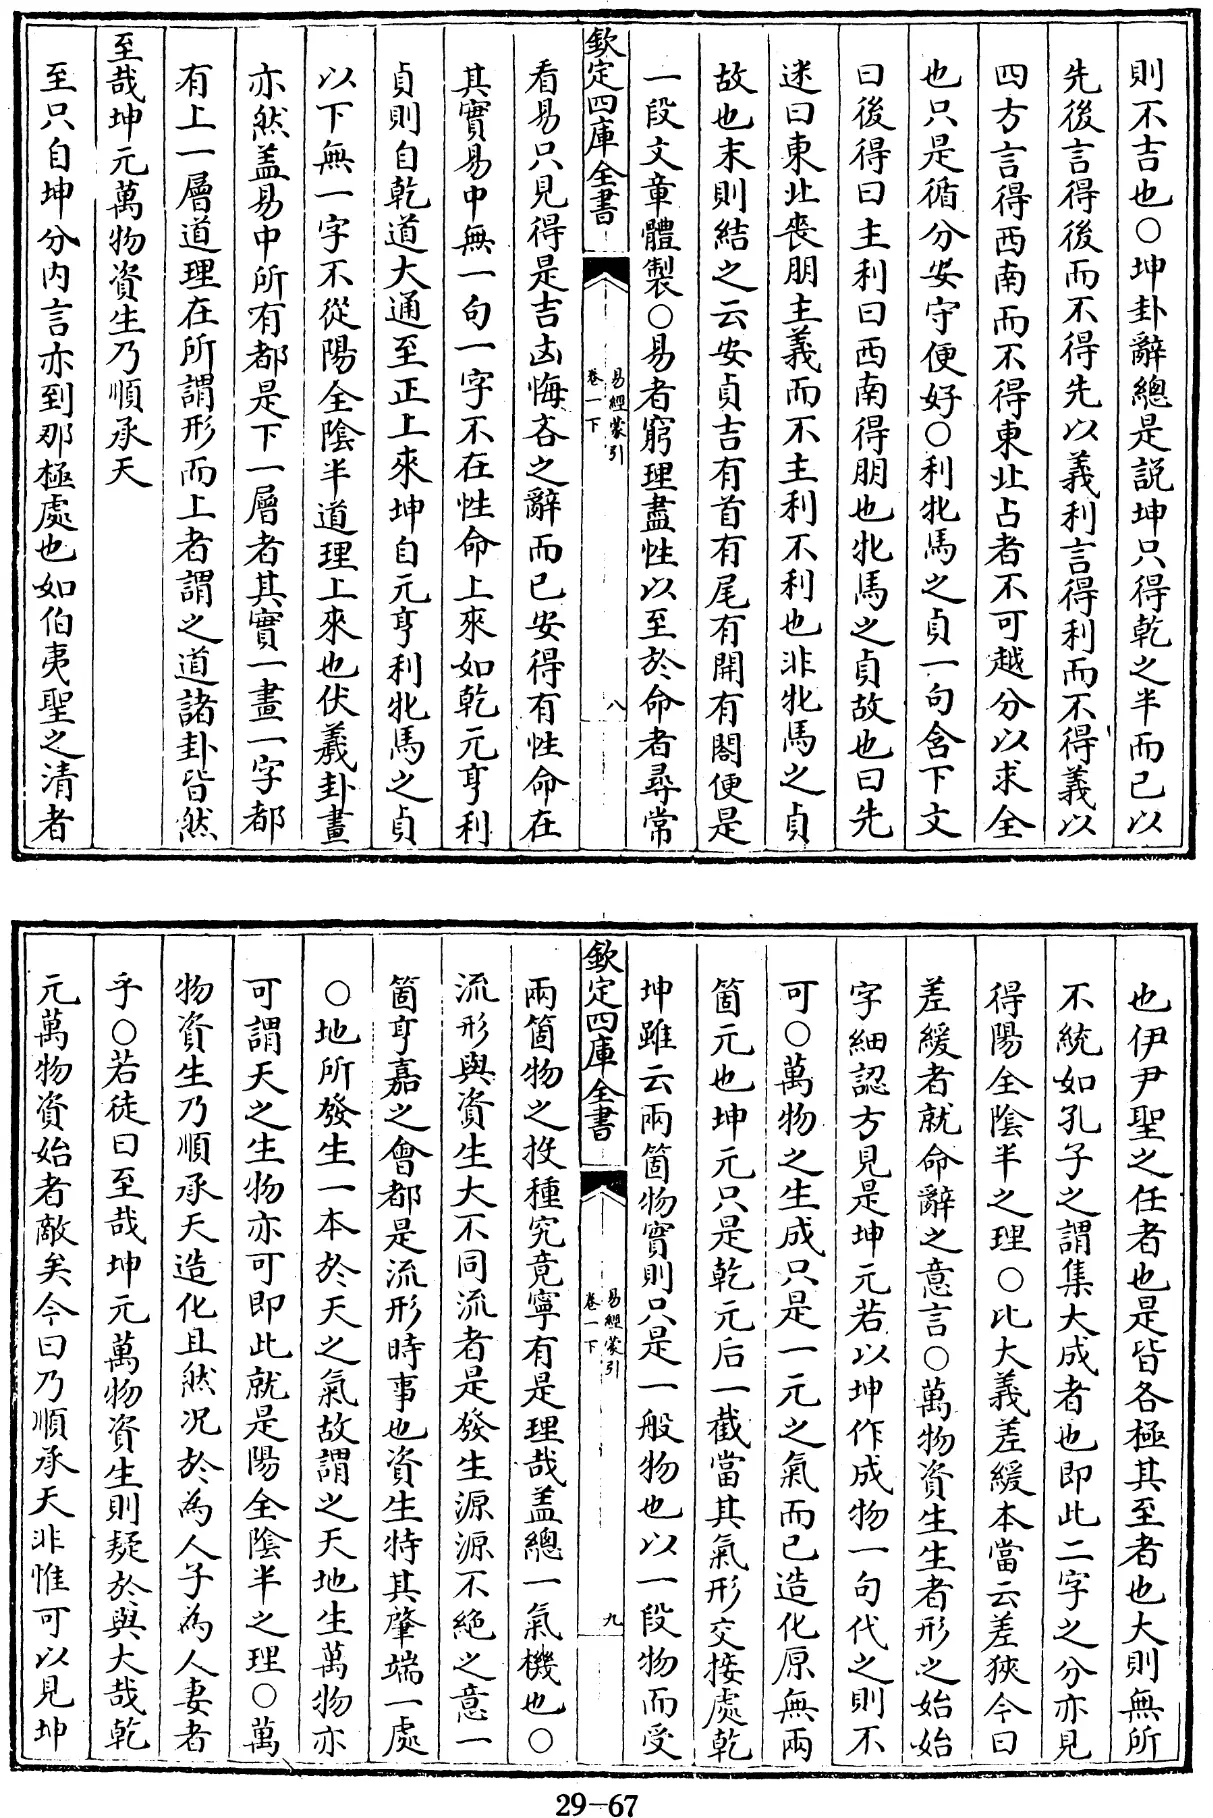 則不吉也○坤卦辭總是説坤只得乾之半而已以
先後言得後而不得先以義利言得利而不得義以
四方言得西南而不得東北占者不可越分以求全
也只是循分安守便好○利牝馬之貞一句含下文
曰後得曰主利曰西南得朋也牝馬之貞故也曰先
迷曰東北喪朋主義而不主利不利也非牝馬之貞
故也末則結之云安貞吉有首有尾有開有闔便是
一段文章體製○易者窮理盡性以至於命者尋常
欽定四庫全書
易經蒙引
卷一下
八
看易只見得是吉凶悔吝之辭而已安得有性命在
其實易中無一句一字不在性命上來如乾元亨利
貞則自乾道大通至正上來坤自元亨利牝馬之貞
以下無一字不從陽全陰半道理上來也伏羲卦畫
亦然盖易中所有都是下一層者其實一畫一字都
有上一層道理在所謂形而上者謂之道諸卦皆然
至哉坤元萬物資生乃順承天
至只自坤分内言亦到那極處也如伯夷聖之清者
也伊尹聖之任者也是皆各極其至者也大則無所
不統如孔子之謂集大成者也即此二字之分亦見
得陽全陰半之理○比大義差緩本當云差狹今曰
差緩者就命辭之意言○萬物資生生者形之始始
字細認方見是坤元若以坤作成物一句代之則不
可○萬物之生成只是一元之氣而已造化原無兩
箇元也坤元只是乾元后一截當其氣形交接處乾
坤雖云兩箇物實則只是一般物也以一段物而受
欽定四庫全書
易經蒙引
卷一下
九
兩箇物之投種究竟寧有是理哉盖總一氣機也○
流形與資生大不同流者是發生源源不絶之意一
箇亨嘉之會都是流形時事也資生特其肇端一處
○地所發生一本於天之氣故謂之天地生萬物亦
可謂天之生物亦可即此就是陽全陰半之理○萬
物資生乃順承天造化且然况於為人子為人妻者
乎○若徒曰至哉坤元萬物資生則疑於與大哉乾
元萬物資始者敵矣今曰乃順承天非惟可以見坤
29-67